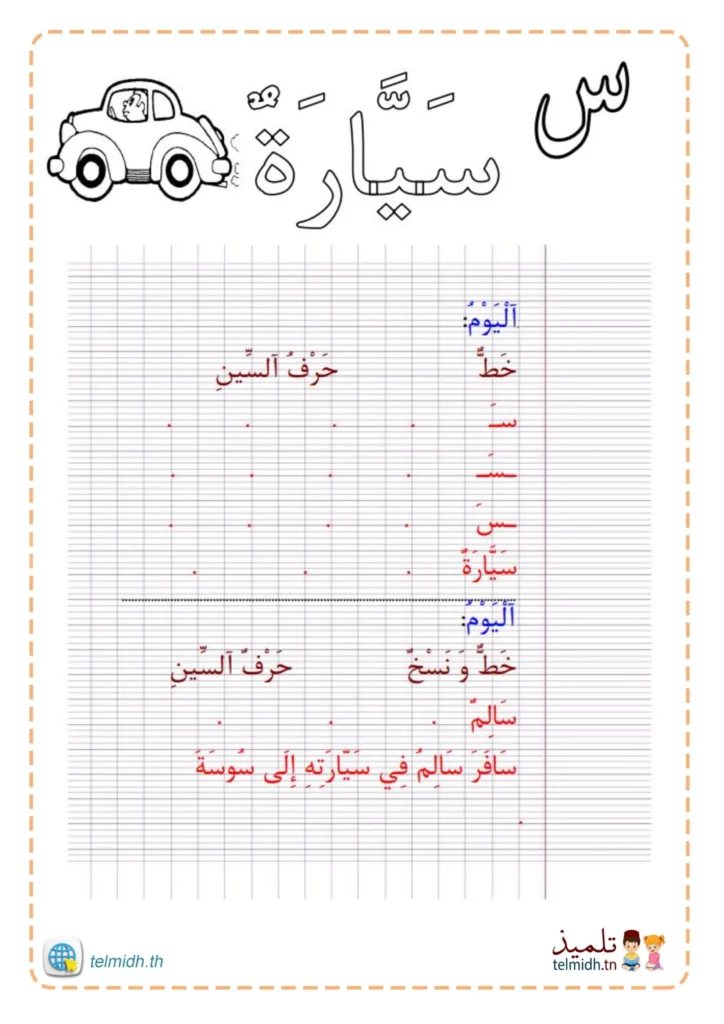 س
سَيَّارَةٌ
اَلْيَوْمُ:
خَطٌّ حَرْفُ اَلسِّينِ
سَـ . . . .
ـسَـ . . . .
ـسَ . . . .
سَيَّارَةٌ . . .
اَلْيَوْمُ:
خَطٌّ وَ نَسْخٌ حَرْفُ اَلسِّينِ
سَالِمٌ . . .
سَافَرَ سَالِمُ فِي سَيَّارَتِهِ إِلَى سُوسَةَ
.
تلميذ
telmidh.tn
telmidh.th